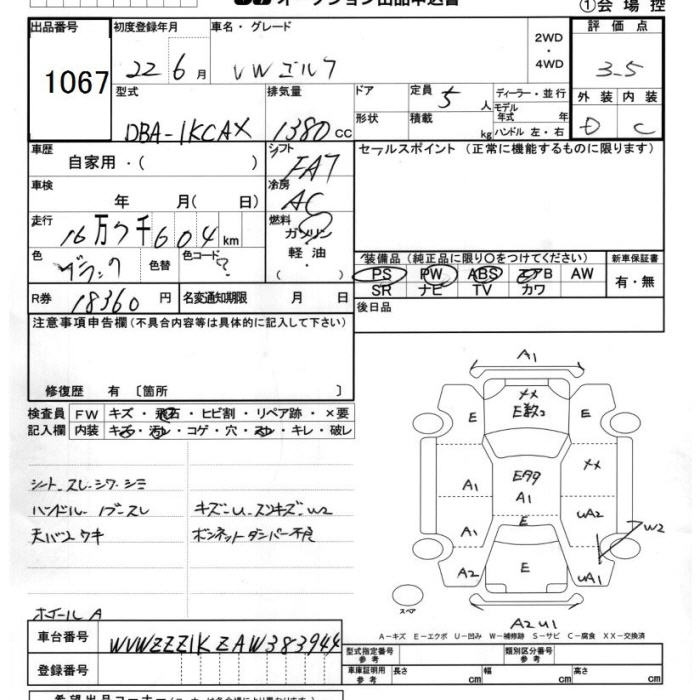 オークション出品申込書
①会場控
出品番号
1067
初度登録年月 22 6 月
車名・グレード VW ゴルフ
2WD ・ 4WD
評価点 3.5
外装 内装
D C
型式 DBA-1KCAX
排気量 1380 cc
ドア
定員 5 人
ディーラー・並行
モデル年式 年
形状
積載 kg
ハンドル 左・右
車歴 自家用・( )
シフト FA7
セールスポイント (正常に機能するものに限ります)
車検 年 月( 日)
冷房 AC
走行 16万7千604 km
燃料 ガソリン 軽油 ・ ( )
色 ブラック 色替 色コード ?
装備品(純正品に限り○をつけてください)
新車保証書
PS PW ABS エアB AW
有・無
SR ナビ TV カワ
R券 18360 円 名変通知期限 月 日
後日品
注意事項申告欄(不具合内容等は具体的に記入して下さい)
修復歴 有 [箇所 ]
検査員 FW キズ・飛石・ヒビ割・リペア跡・×要
記入欄 内装 キズ・汚レ・コゲ・穴・スレ・キレ・破レ
シート スレ シワ シミ
ハンドル ノブ スレ キズ U スリキズ W2
天バリ ウキ ボンネットダンパー不良
ホイールA
A1
E E数2 ×× E
A1 ××
E A1
A1 E UA2 W2
A2 E UA1
スペア
A2U1
A-キズ E-エクボ U-凹み W-補修跡 S-サビ C-腐食 XX-交換済
車台番号 WVWZZZ1KZAW383944
登録番号
型式指定番号 参考
類別区分番号 参考
車庫証明用 参考 長さ cm 幅 cm 高さ cm